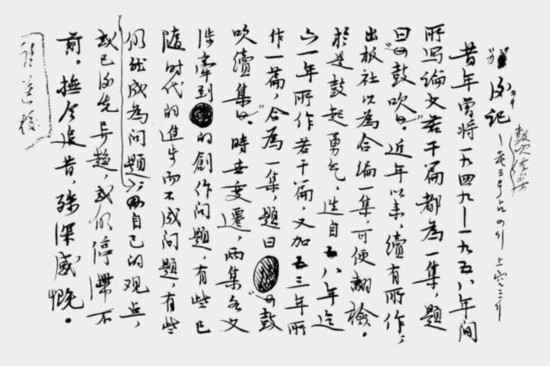 后记
鼓吹续集
昔年曾将一九四九—一九五八年间
所写论文若干篇都为一集,题
曰《鼓吹》。近年以来,续有所作,
出版社以为合编一集,可便翻检。
於是鼓起勇气,选自五八年迄
六一年所作若干篇,又加五三年所
作一篇,合为一集,题曰《鼓
吹续集》。时世变迁,两集各文
涉牵到的創作问题,有些已
随时代的进步而不成问题,有些
仍然成为问题;而自己的观点,
或已异趋,或仍停滞不
前。抚今追昔,殊深感慨。